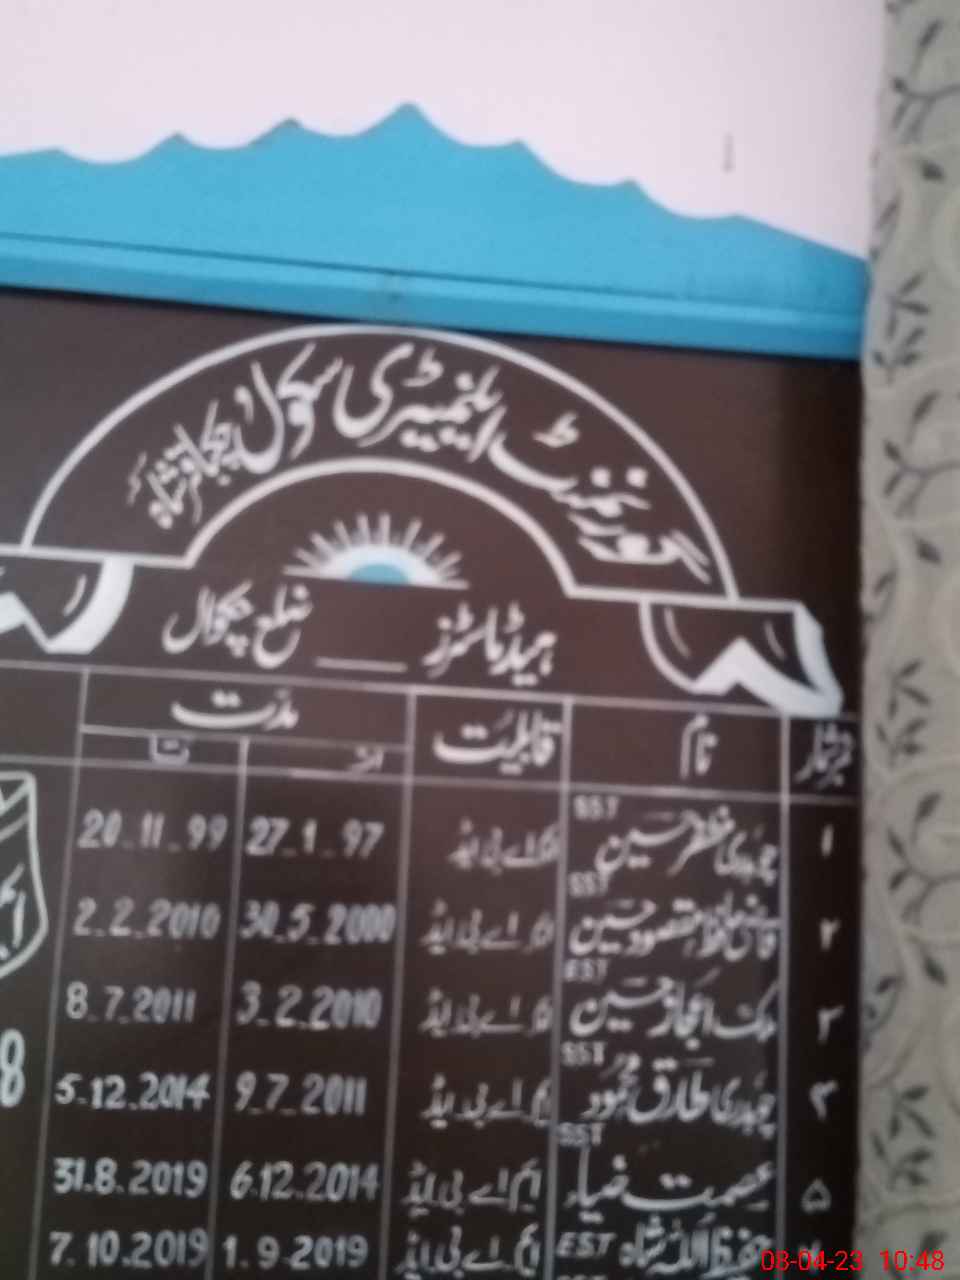 گورنمنٹ ایلیمنٹری سکول
ہیڈ ماسٹرز ____ ضلع چکوال
نمبر شمار نام قابلیت مدت
از تا
SST
۱ چوہدری غضنفر حسین ایم اے بی ایڈ 27_1_97 20_11_99
SST
۲ قاضی حافظ مقصود حسین ایم اے بی ایڈ 30_5_2000 2_2_2010
EST
۳ ملک اعجاز حسین ایم اے بی ایڈ 3_2_2010 8_7_2011
SST
۴ چوہدری طارق محمود ایم اے بی ایڈ 9_7_2011 5.12.2014
SST
۵ عصمت ضیاء ایم اے بی ایڈ 6.12.2014 31.8.2019
حفیظ اللہ شاہ EST ایم اے بی ایڈ 1_9_2019 7.10.2019
8
08-04-23 10:48